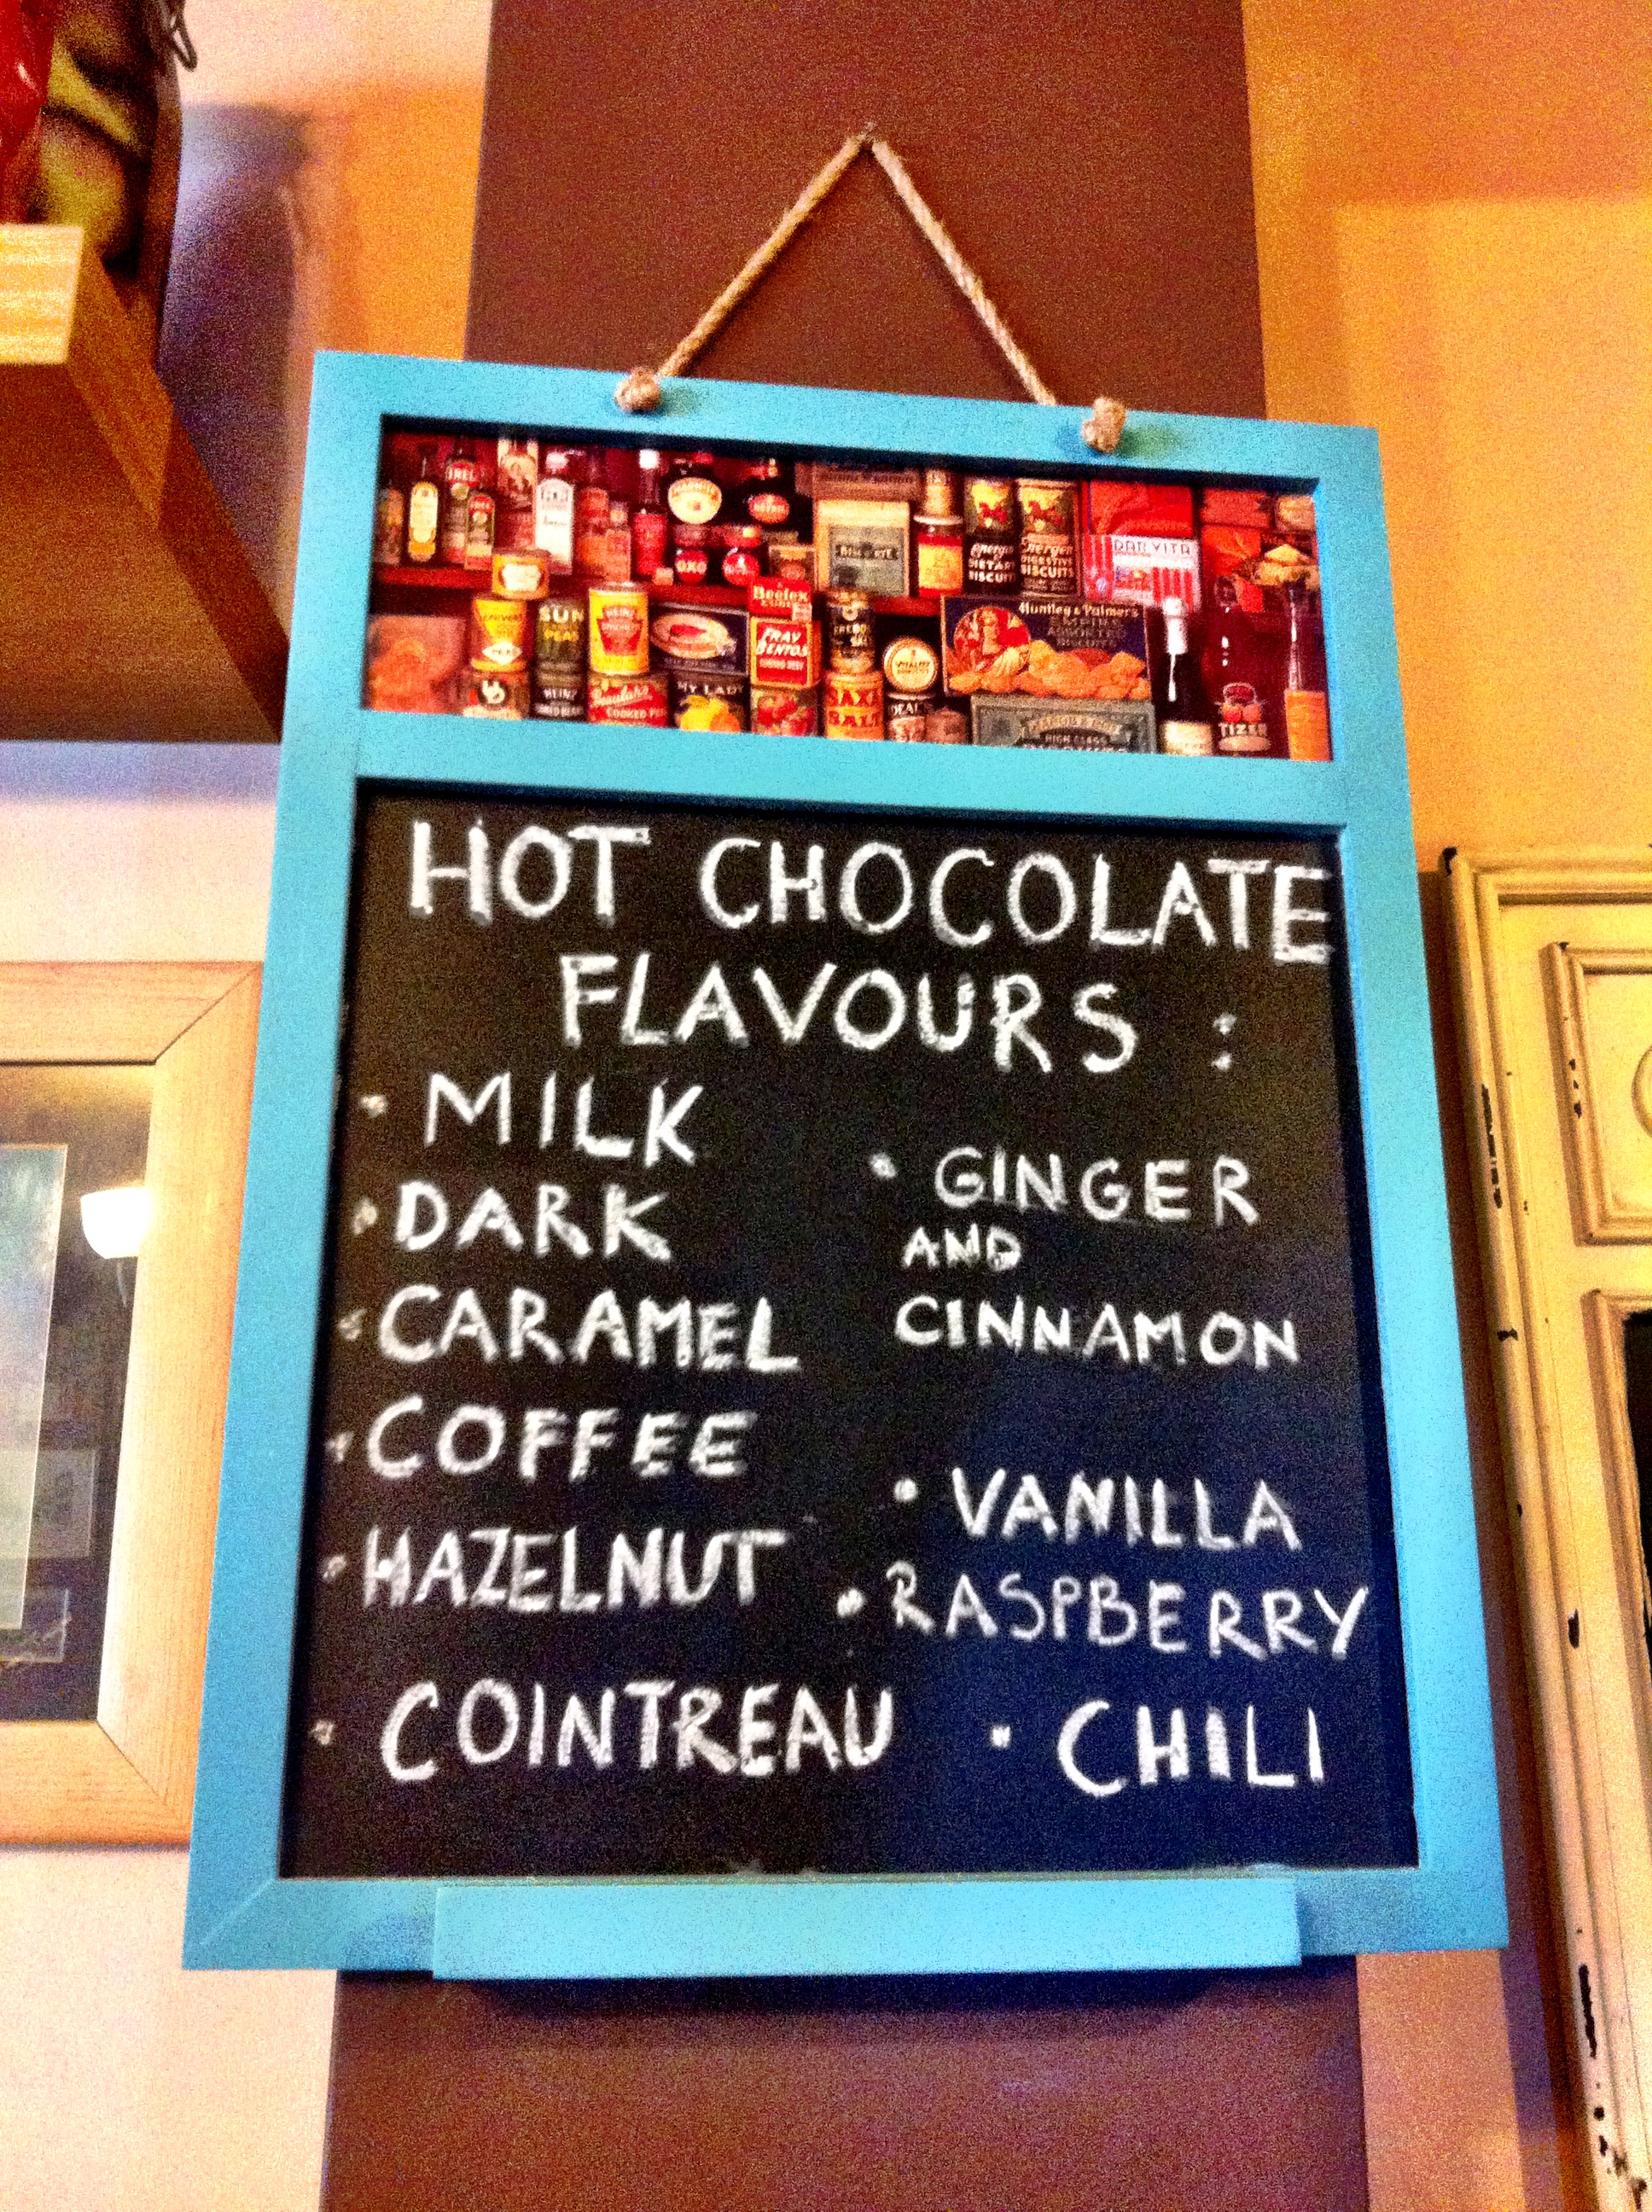 OXO
Energen
DIETARY
BISCUITS
Energen
DIGESTIVE
BISCUITS
DAR-VITA
SUN
PEAS
HEINZ
Beefex
FRAY
BENTOS
Huntley & Palmers
EMPIRE
ASSORTED
BISCUITS
HEINZ
COOKED PEAS
MY LADY
SAXA
SALT
HIGH CLASS
TIZER
HOT CHOCOLATE
FLAVOURS :
• MILK
• DARK
• CARAMEL
• COFFEE
• HAZELNUT
• COINTREAU
• GINGER
AND
CINNAMON
• VANILLA
• RASPBERRY
• CHILI